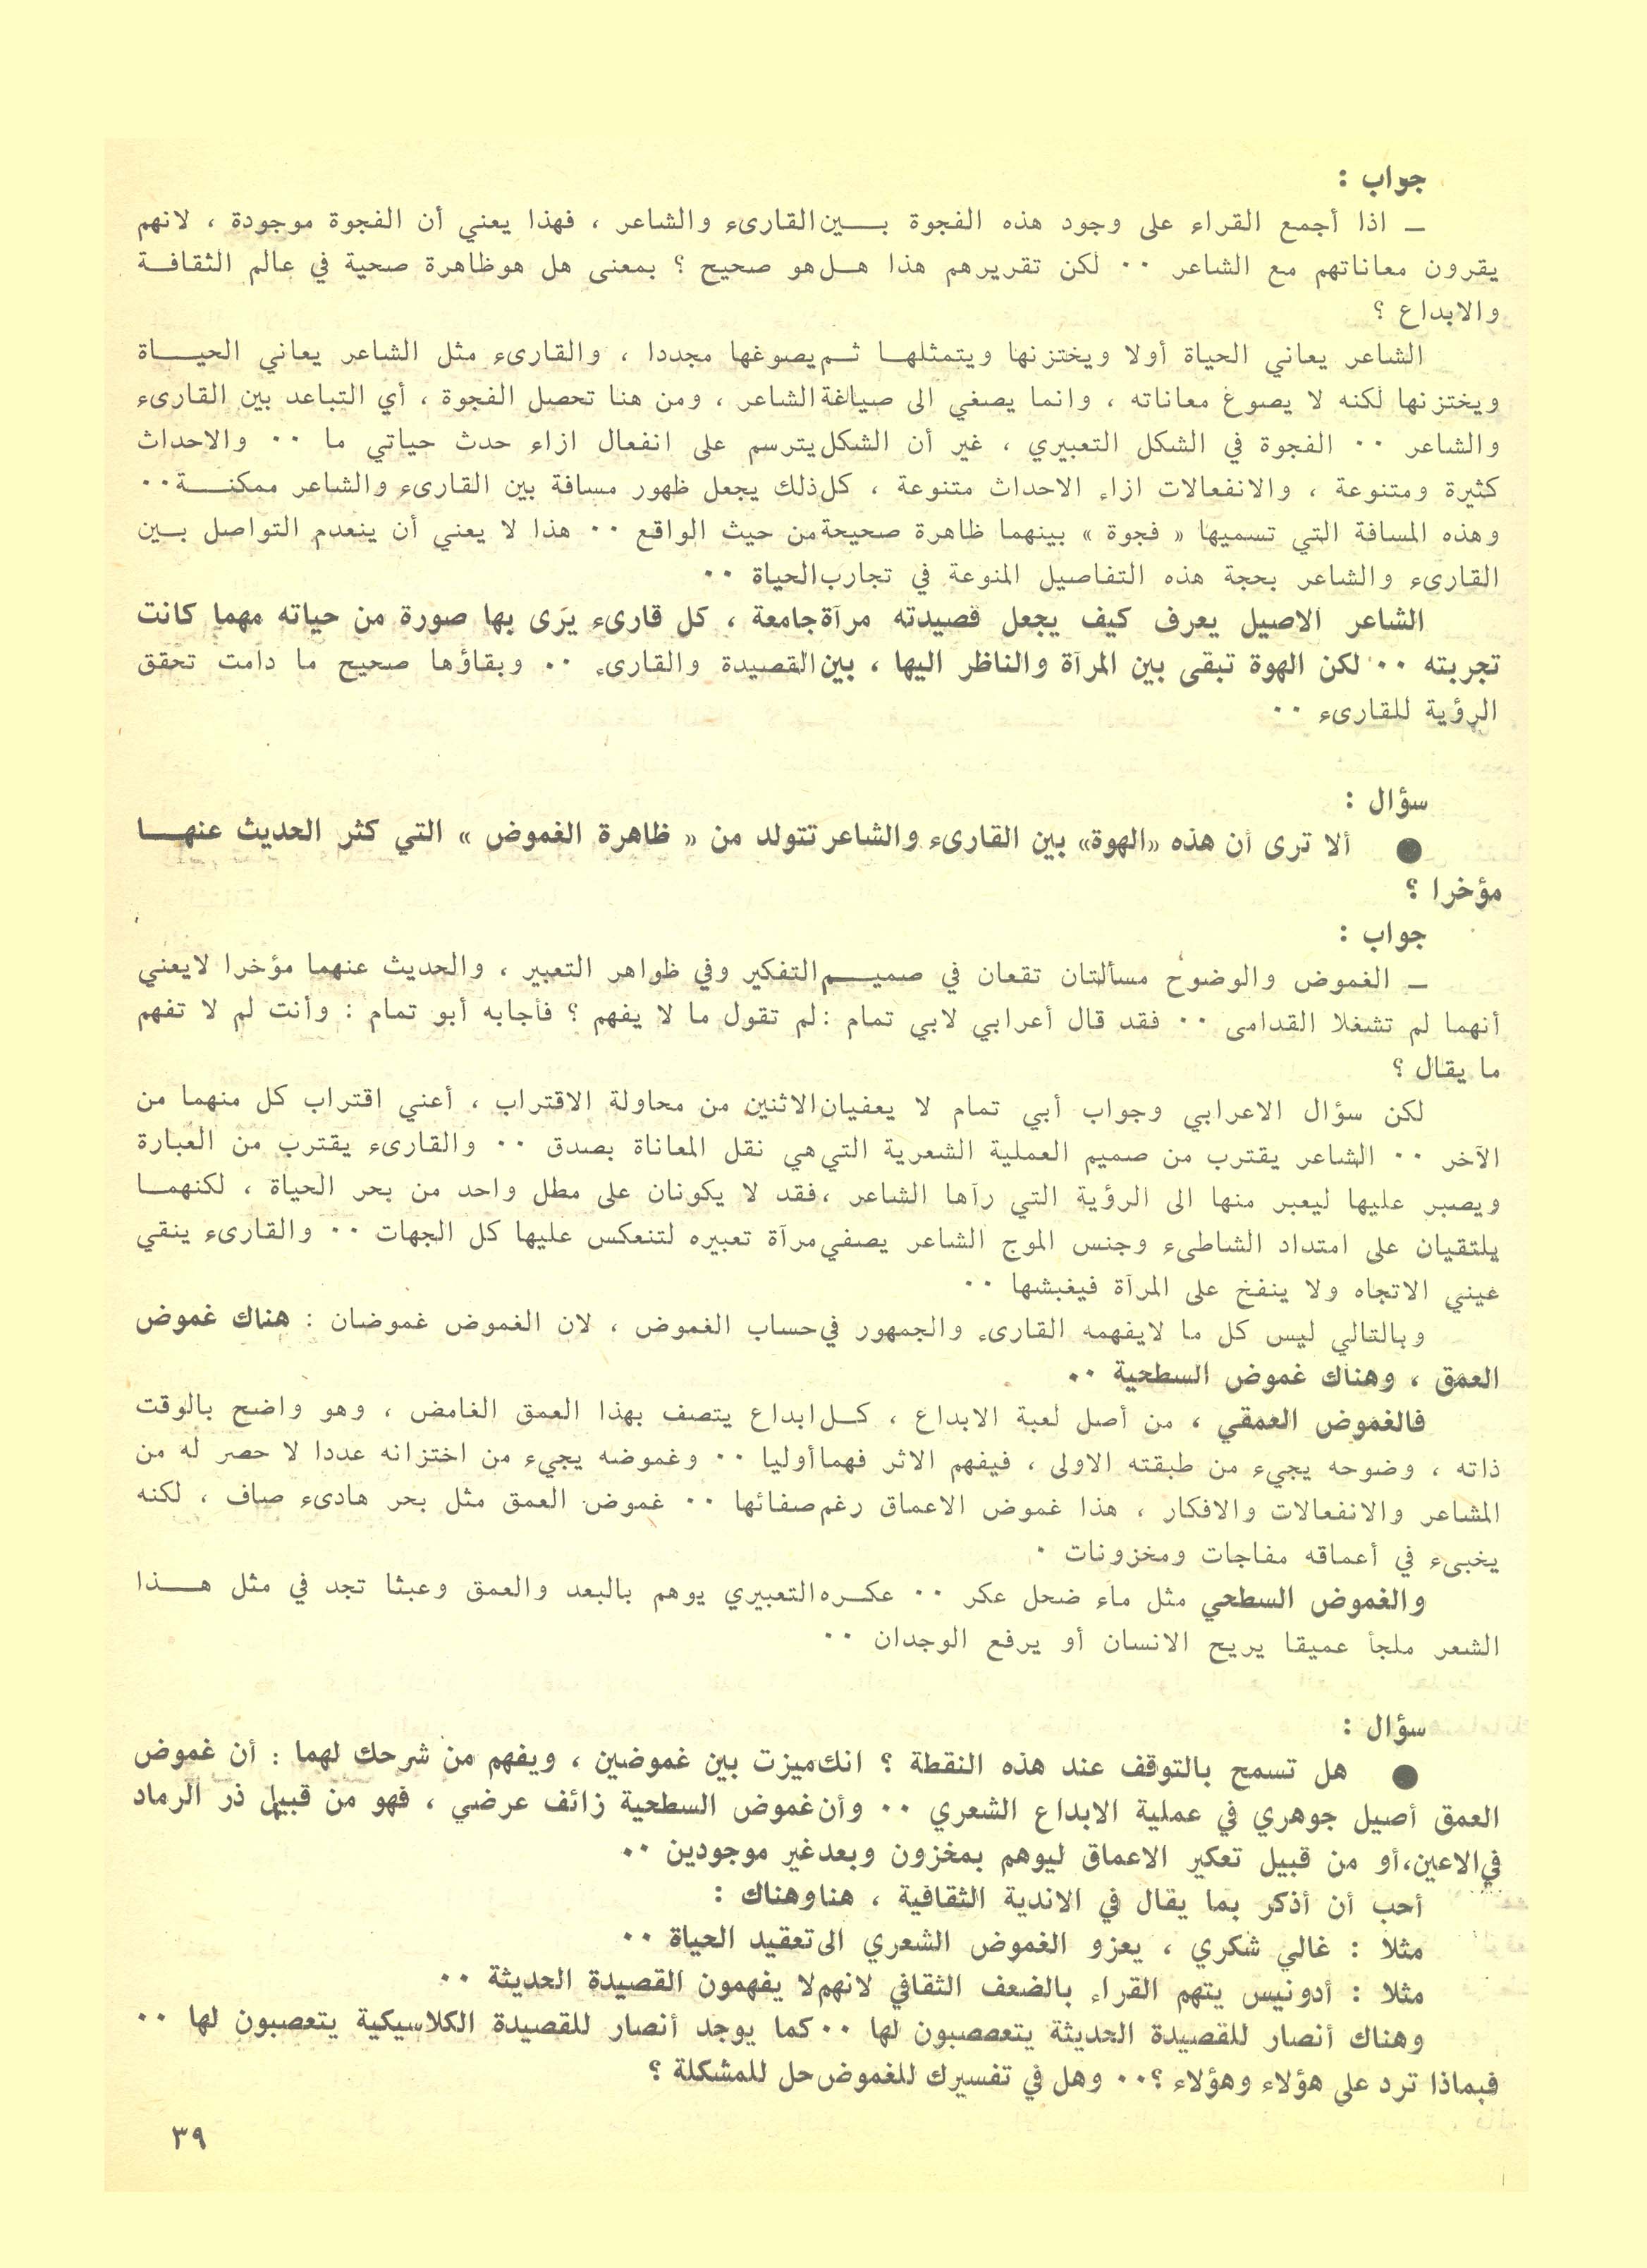 جواب :
ـ اذا أجمع القراء على وجود هذه الفجوة بـــين القارىء والشاعر ، فهذا يعني أن الفجوة موجودة ، لانهم
يقرون معاناتهم مع الشاعر ٠٠ لكن تقريرهم هذا هــل هو صحيح ؟ بمعنى هل هو ظاهرة صحية في عالم الثقافــة
والابداع ؟
الشاعر يعاني الحياة أولا ويختزنها ويتمثلهــا ثــم يصوغها مجددا ، والقارىء مثل الشاعر يعاني الحيـــاة
ويختزنها لكنه لا يصوغ معاناته ، وانما يصغي الى صياغة الشاعر ، ومن هنا تحصل الفجوة ، أي التباعد بين القارىء
والشاعر ٠٠ الفجوة في الشكل التعبيري ، غير أن الشكل يترسم على انفعال ازاء حدث حياتي ما ٠٠ والاحداث
كثيرة ومتنوعة ، والانفعالات ازاء الاحداث متنوعة ، كل ذلك يجعل ظهور مسافة بين القارىء والشاعر ممكنـــة ٠٠
وهذه المسافة التي تسميها « فجوة » بينهما ظاهرة صحيحة من حيث الواقع ٠٠ هذا لا يعني أن ينعدم التواصل بــين
القارىء والشاعر بحجة هذه التفاصيل المنوعة في تجارب الحياة ٠٠
الشاعر الاصيل يعرف كيف يجعل قصيدته مرآة جامعة ، كل قارىء يرى بها صورة من حياته مهما كانت
تجربته ٠٠ لكن الهوة تبقى بين المرآة والناظر اليها ، بين القصيدة والقارىء ٠٠ وبقاؤها صحيح ما دامت تحقق
الرؤية للقارىء ٠٠
سؤال :
● ألا ترى أن هذه «الهوة» بين القارىء والشاعر تتولد من « ظاهرة الغموض » التي كثر الحديث عنهـــا
مؤخرا ؟
جواب :
ـ الغموض والوضوح مسألتان تقعان في صميـــم التفكير وفي ظواهر التعبير ، والحديث عنهما مؤخرا لا يعني
أنهما لم تشغلا القدامى ٠٠ فقد قال أعرابي لابي تمام : لم تقول ما لا يفهم ؟ فأجابه أبو تمام : وأنت لم لا تفهم
ما يقال ؟
لكن سؤال الاعرابي وجواب أبي تمام لا يعفيان الاثنين من محاولة الاقتراب ، أعني اقتراب كل منهما من
الآخر ٠٠ الشاعر يقترب من صميم العملية الشعرية التي هي نقل المعاناة بصدق ٠٠ والقارىء يقترب من العبارة
ويصبر عليها ليعبر منها الى الرؤية التي رآها الشاعر ، فقد لا يكونان على مطل واحد من بحر الحياة ، لكنهمــا
يلتقيان على امتداد الشاطىء وجنس الموج الشاعر يصفي مرآة تعبيره لتنعكس عليها كل الجهات ٠٠ والقارىء ينقي
عيني الاتجاه ولا ينفخ على المرآة فيغبشها ٠٠
وبالتالي ليس كل ما لايفهمه القارىء والجمهور في حساب الغموض ، لان الغموض غموضان : هناك غموض
العمق ، وهناك غموض السطحية ٠٠
فالغموض العمقي ، من أصل لعبة الابداع ، كــل ابداع يتصف بهذا العمق الغامض ، وهو واضح بالوقت
ذاته ، وضوحه يجيء من طبقته الاولى ، فيفهم الاثر فهما أوليا ٠٠ وغموضه يجيء من اختزانه عددا لا حصر له من
المشاعر والانفعالات والافكار ، هذا غموض الاعماق رغم صفائها ٠٠ غموض العمق مثل بحر هادىء صاف ، لكنه
يخبىء في أعماقه مفاجات ومخزونات ٠
والغموض السطحي مثل ماء ضحل عكر ٠٠ عكــره التعبيري يوهم بالبعد والعمق وعبثا تجد في مثل هـــذا
الشعر ملجأ عميقا يريح الانسان أو يرفع الوجدان ٠٠
سؤال :
● هل تسمح بالتوقف عند هذه النقطة ؟ انك ميزت بين غموضين ، ويفهم من شرحك لهما : أن غموض
العمق أصيل جوهري في عملية الابداع الشعري ٠٠ وأن غموض السطحية زائف عرضي ، فهو من قبيل ذر الرماد
في الاعين، أو من قبيل تعكير الاعماق ليوهم بمخزون وبعد غير موجودين ٠٠
أحب أن أذكر بما يقال في الاندية الثقافية ، هنا وهناك :
مثلا : غالي شكري ، يعزو الغموض الشعري الى تعقيد الحياة ٠٠
مثلا : أدونيس يتهم القراء بالضعف الثقافي لانهم لا يفهمون القصيدة الحديثة ٠٠
وهناك أنصار للقصيدة الحديثة يتعصصبون لها ٠٠ كما يوجد أنصار للقصيدة الكلاسيكية يتعصبون لها ٠٠
فبماذا ترد على هؤلاء وهؤلاء ؟ ٠٠ وهل في تفسيرك للغموض حل للمشكلة ؟
٣٩